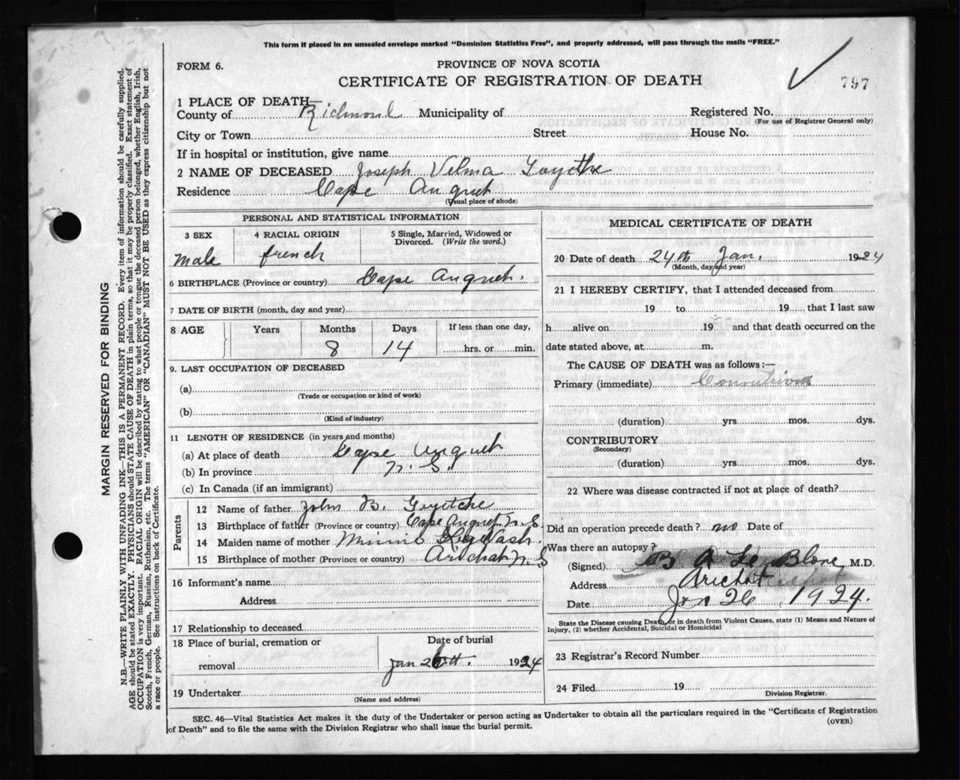 This form if placed in an unsealed envelope marked "Dominion Statistics Free", and properly addressed, will pass through the mails "FREE."
FORM 6.
PROVINCE OF NOVA SCOTIA
CERTIFICATE OF REGISTRATION OF DEATH
797
1 PLACE OF DEATH
County of Richmond Municipality of Registered No.
(For use of Registrar General only)
City or Town Street House No.
If in hospital or institution, give name
2 NAME OF DECEASED Joseph Velma Goyetche
Residence Cape Auguet
(Usual place of abode)
PERSONAL AND STATISTICAL INFORMATION
3 SEX 4 RACIAL ORIGIN 5 Single, Married, Widowed or Divorced. (Write the word.)
male french
6 BIRTHPLACE (Province or country) Cape Auguet.
7 DATE OF BIRTH (month, day and year)
8 AGE Years Months Days If less than one day,
8 14 hrs. or min.
9. LAST OCCUPATION OF DECEASED
(a)
(Trade or occupation or kind of work)
(b)
(Kind of industry)
11 LENGTH OF RESIDENCE (in years and months)
(a) At place of death Cape Auguet
(b) In province N. S.
(c) In Canada (if an immigrant)
Parents
12 Name of father John B. Goyetche
13 Birthplace of father (Province or country) Cape Auguet N. S.
14 Maiden name of mother
15 Birthplace of mother (Province or country) Arichat N. S
16 Informant's name
Address
17 Relationship to deceased
18 Place of burial, cremation or removal Date of burial
Jan 26th. 1924
19 Undertaker
(Name and address)
MEDICAL CERTIFICATE OF DEATH
20 Date of death 24th Jan. 1924
(Month, day and year)
21 I HEREBY CERTIFY, that I attended deceased from
19 to 19 that I last saw
h alive on 19 and that death occurred on the
date stated above, at m.
The CAUSE OF DEATH was as follows:—
Primary (immediate) Convulsions
(duration) yrs. mos. dys.
CONTRIBUTORY
(Secondary)
(duration) yrs. mos. dys.
22 Where was disease contracted if not at place of death?
Did an operation precede death? no Date of
Was there an autopsy?
(Signed) B A Le Blanc, M.D.
Address Arichat
Date Jan 26, 1924.
State the Disease causing Death, or in death from Violent Causes, state (1) Means and Nature of Injury, (2) whether Accidental, Suicidal or Homicidal
23 Registrar's Record Number
24 Filed 19
Division Registrar.
SEC. 46—Vital Statistics Act makes it the duty of the Undertaker or person acting as Undertaker to obtain all the particulars required in the "Certificate of Registration
of Death" and to file the same with the Division Registrar who shall issue the burial permit.
(OVER)
MARGIN RESERVED FOR BINDING
N.B.—WRITE PLAINLY WITH UNFADING INK—THIS IS A PERMANENT RECORD. Every item of information should be carefully supplied.
AGE should be stated EXACTLY. PHYSICIANS should STATE CAUSE OF DEATH in plain terms, so that it may be properly classified. Exact statement of
OCCUPATION is very important. RACIAL ORIGIN will be described by stating to what people or tongue the deceased person belonged, whether English, Irish,
Scotch, French, German, Russian, Ruthenian, etc. The terms "AMERICAN" OR "CANADIAN" MUST NOT BE USED as they express citizenship but not
a race or people. See instructions on back of Certificate.